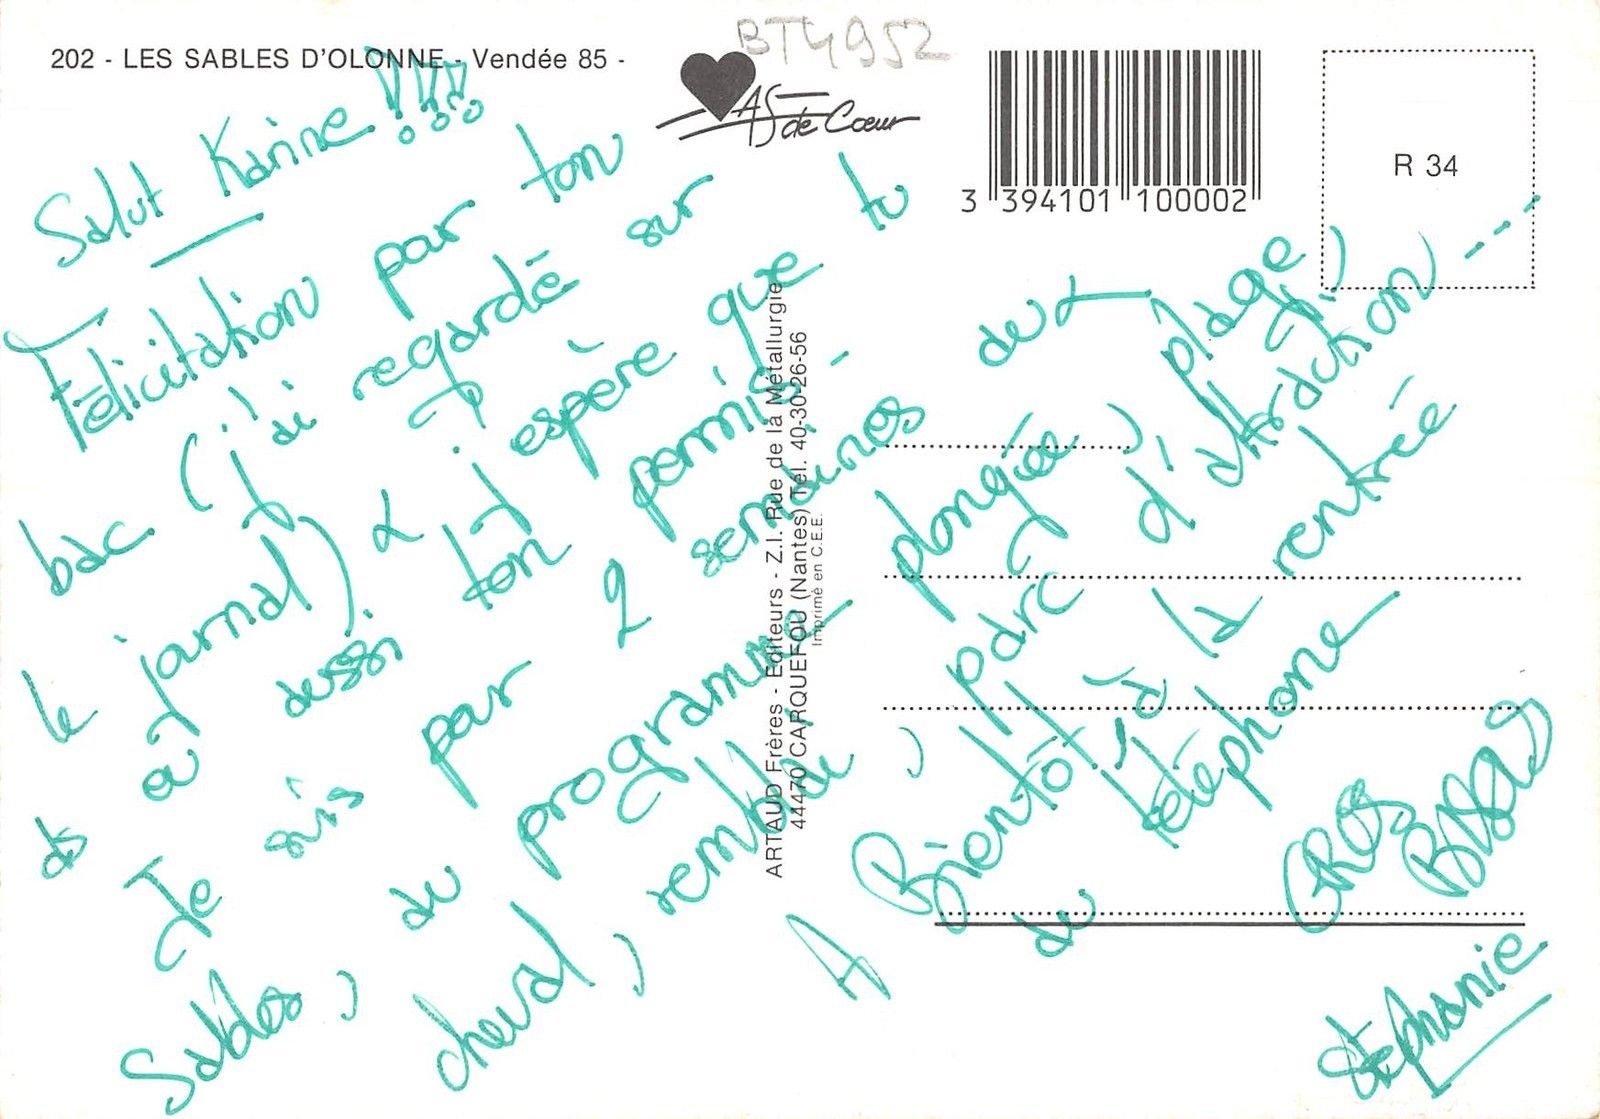 202 - LES SABLES D'OLONNE - Vendée 85 -
BT4952
AS de Cœur
3 394101 100002
R 34
Salut Karine !!!!
Félicitation pour ton
bac (j'ai regardé sur
le journal) & j'espère que tu
as eu aussi ton permis -
Je suis pour 2 semaines aux
Sables, au programme plongée, plage,
cheval, remblai, parc d'attraction ---
A Bientôt, à la rentrée
au téléphone
GROS
BISOUS
Stéphanie
ARTAUD Frères - Editeurs - Z.I. Rue de la Métallurgie
44470 CARQUEFOU (Nantes) Tél. 40-30-26-56
Imprimé en C.E.E.